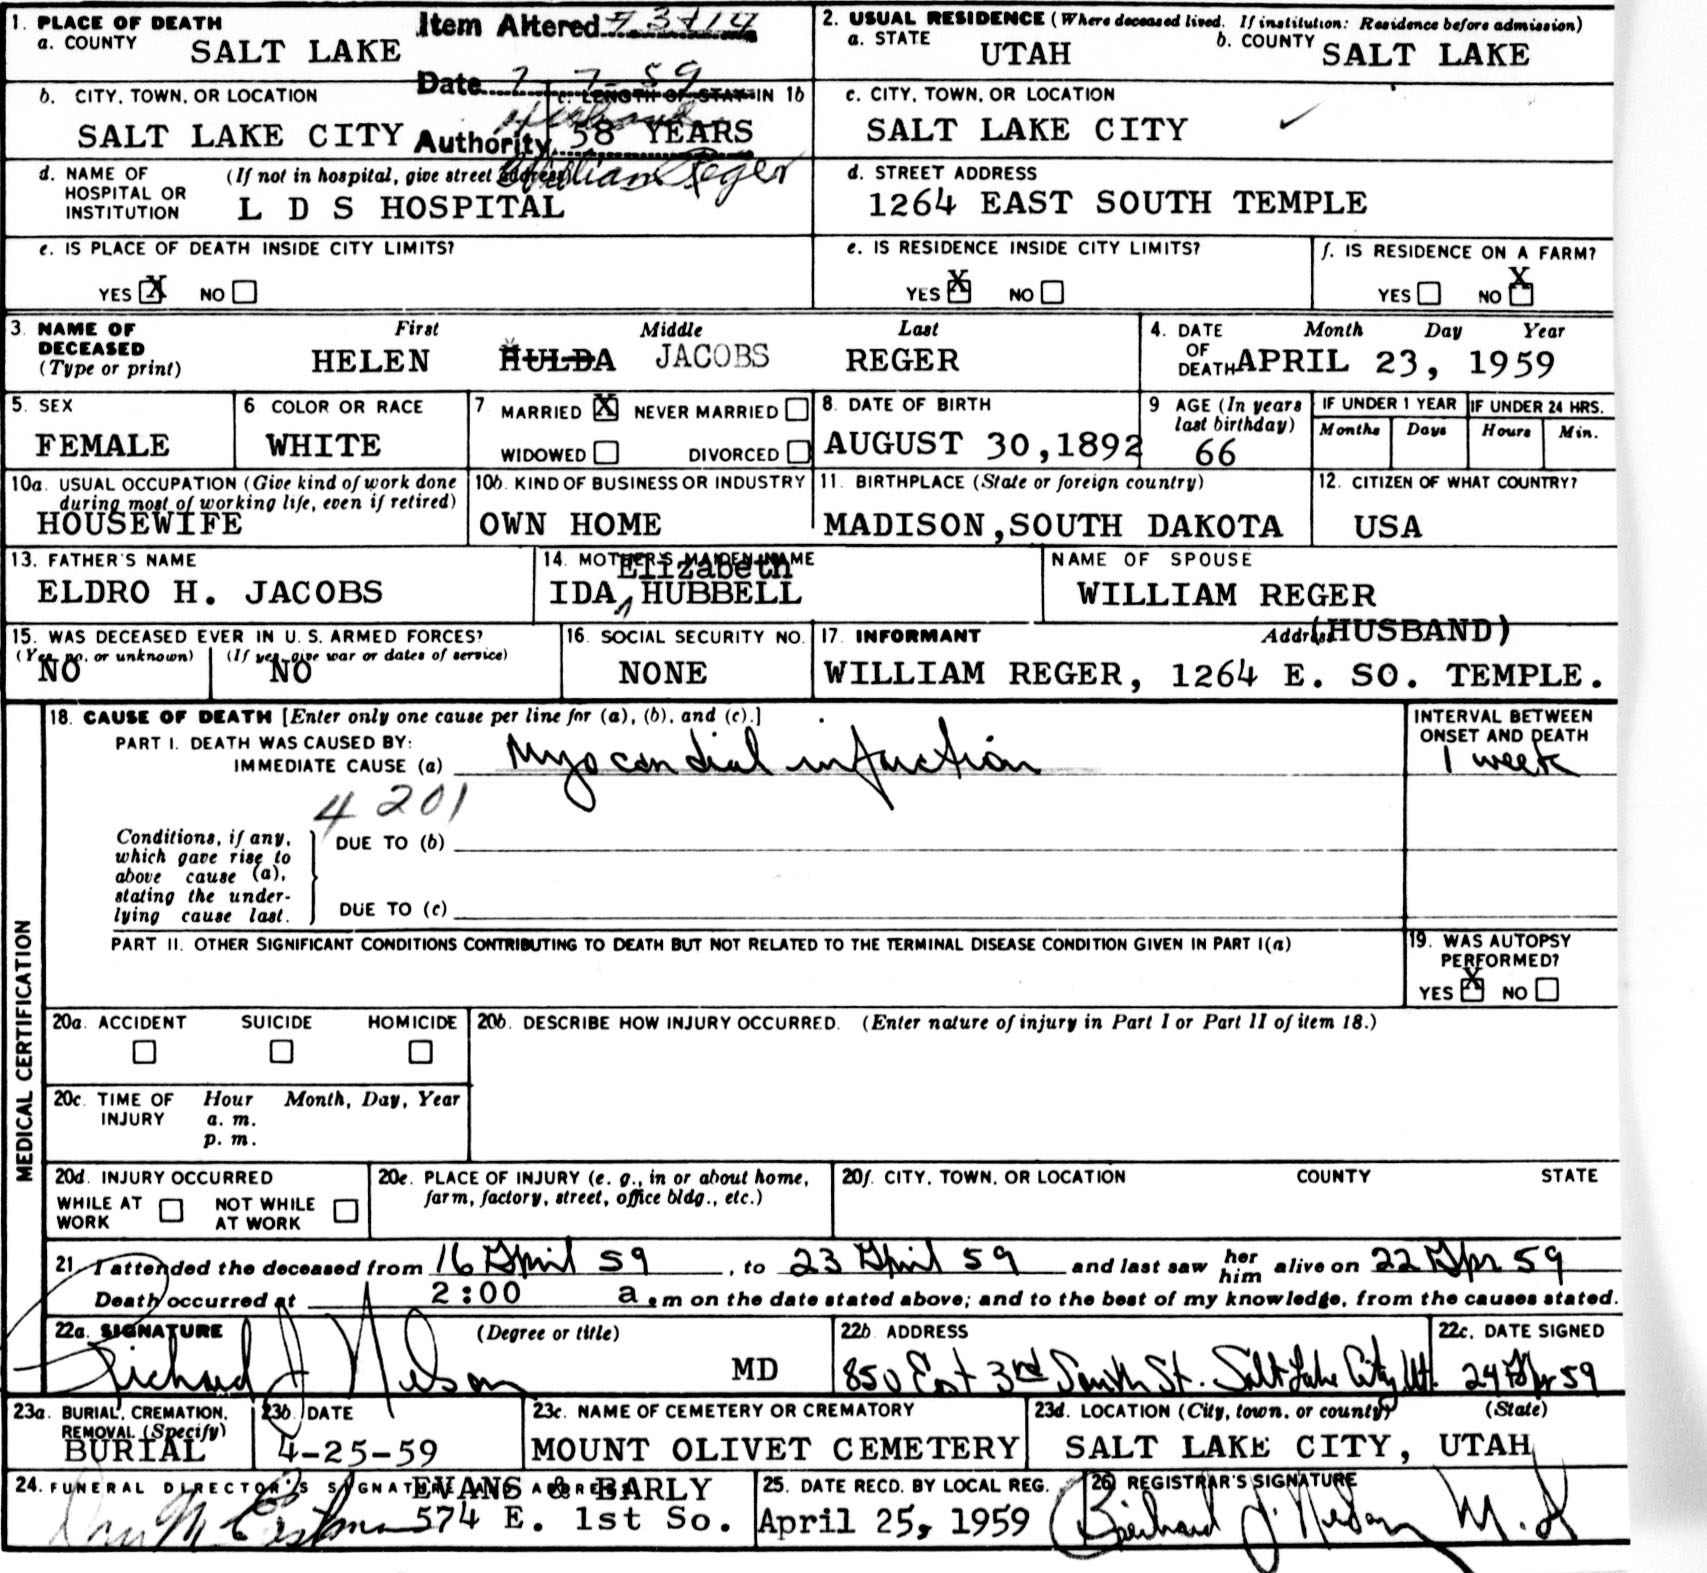 1. PLACE OF DEATH
a. COUNTY SALT LAKE
Item Altered #3 & 14
Date 7-7-59
Authority Husband
William Reger
2. USUAL RESIDENCE (Where deceased lived. If institution: Residence before admission)
a. STATE UTAH b. COUNTY SALT LAKE
b. CITY, TOWN, OR LOCATION SALT LAKE CITY
c. LENGTH OF STAY IN 1b 58 YEARS
c. CITY, TOWN, OR LOCATION SALT LAKE CITY ✓
d. NAME OF HOSPITAL OR INSTITUTION (If not in hospital, give street address) L D S HOSPITAL
d. STREET ADDRESS 1264 EAST SOUTH TEMPLE
e. IS PLACE OF DEATH INSIDE CITY LIMITS?
YES X NO
e. IS RESIDENCE INSIDE CITY LIMITS?
YES X NO
f. IS RESIDENCE ON A FARM?
YES NO X
3. NAME OF DECEASED (Type or print) First Middle Last
HELEN HULDA JACOBS REGER
4. DATE OF DEATH Month Day Year
APRIL 23, 1959
5. SEX FEMALE
6 COLOR OR RACE WHITE
7 MARRIED X NEVER MARRIED
WIDOWED DIVORCED
8. DATE OF BIRTH AUGUST 30,1892
9 AGE (In years last birthday) 66
IF UNDER 1 YEAR Months Days
IF UNDER 24 HRS. Hours Min.
10a. USUAL OCCUPATION (Give kind of work done during most of working life, even if retired) HOUSEWIFE
10b. KIND OF BUSINESS OR INDUSTRY OWN HOME
11. BIRTHPLACE (State or foreign country) MADISON,SOUTH DAKOTA
12. CITIZEN OF WHAT COUNTRY? USA
13. FATHER'S NAME ELDRO H. JACOBS
14. MOTHER'S MAIDEN NAME
Elizabeth
IDA HUBBELL
NAME OF SPOUSE WILLIAM REGER
15. WAS DECEASED EVER IN U. S. ARMED FORCES?
(Yes, no, or unknown) NO (If yes, give war or dates of service) NO
16. SOCIAL SECURITY NO. NONE
17. INFORMANT Address (HUSBAND)
WILLIAM REGER, 1264 E. SO. TEMPLE.
MEDICAL CERTIFICATION
18. CAUSE OF DEATH [Enter only one cause per line for (a), (b), and (c).]
INTERVAL BETWEEN ONSET AND DEATH
PART I. DEATH WAS CAUSED BY:
IMMEDIATE CAUSE (a) Myocardial infarction 1 week
4201
Conditions, if any, which gave rise to above cause (a), stating the underlying cause last.
DUE TO (b)
DUE TO (c)
PART II. OTHER SIGNIFICANT CONDITIONS CONTRIBUTING TO DEATH BUT NOT RELATED TO THE TERMINAL DISEASE CONDITION GIVEN IN PART I(a)
19. WAS AUTOPSY PERFORMED?
YES X NO
20a. ACCIDENT SUICIDE HOMICIDE
20b. DESCRIBE HOW INJURY OCCURRED. (Enter nature of injury in Part I or Part II of item 18.)
20c. TIME OF INJURY Hour Month, Day, Year
a. m.
p. m.
20d. INJURY OCCURRED
WHILE AT WORK NOT WHILE AT WORK
20e. PLACE OF INJURY (e. g., in or about home, farm, factory, street, office bldg., etc.)
20f. CITY, TOWN, OR LOCATION COUNTY STATE
21. I attended the deceased from 16 April 59, to 23 April 59 and last saw her him alive on 22 Apr 59
Death occurred at 2:00 a.m on the date stated above; and to the best of my knowledge, from the causes stated.
22a. SIGNATURE (Degree or title)
Richard J Nelson MD
22b. ADDRESS
850 East 3rd South St. Salt Lake City, Ut.
22c. DATE SIGNED
24 Apr 59
23a. BURIAL, CREMATION, REMOVAL (Specify) BURIAL
23b. DATE 4-25-59
23c. NAME OF CEMETERY OR CREMATORY MOUNT OLIVET CEMETERY
23d. LOCATION (City, town, or county) (State) SALT LAKE CITY, UTAH
24. FUNERAL DIRECTOR'S SIGNATURE ADDRESS
EVANS & EARLY
574 E. 1st So.
25. DATE RECD. BY LOCAL REG. April 25, 1959
26. REGISTRAR'S SIGNATURE